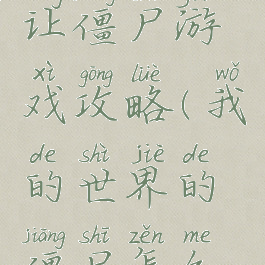 让僵尸游
xì gōng lüè wǒ
戏攻略(我
de shì jiè de
的世界的
jiāng shī zěn me
僵尸怎么